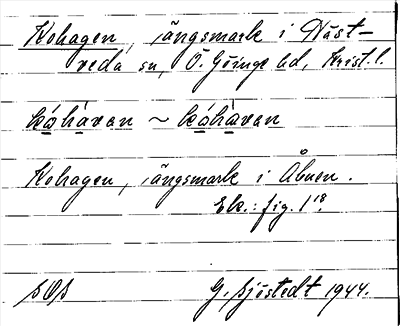 Kohagen, ängsmark i Näst-
reda sn, Ö. Göinge hd, Krist. l.
kóhàvan ~ kóhàvan
Kohagen, ängsmark i Åbuen.
Ek.: fig. 1 18.
SOS
G. Sjöstedt 1944.